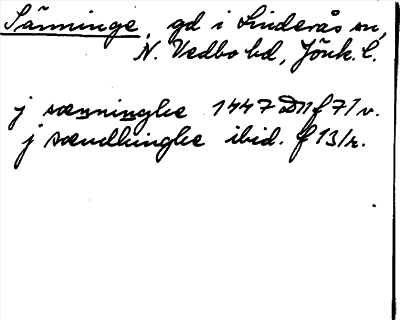 Sänninge, gd i Linderås sn,
N. Vedbo hd, Jönk. l.
j sænninghe 1447 D11 f 71 v.
j sændhinghe ibid. f 13/r.